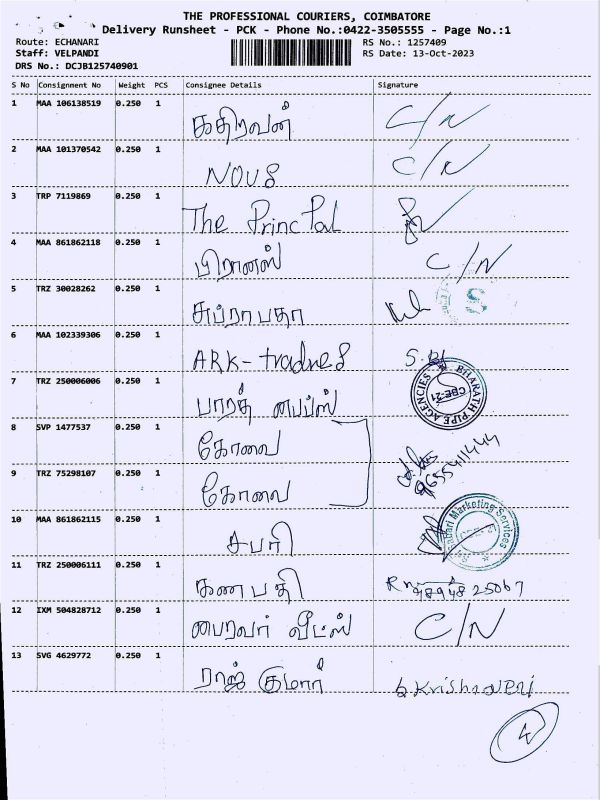 THE PROFESSIONAL COURIERS, COIMBATORE
Delivery Runsheet - PCK - Phone No.:0422-3505555 - Page No.:1
Route: ECHANARI RS No.: 1257409
Staff: VELPANDI RS Date: 13-Oct-2023
DRS No.: DCJB125740901
S No Consignment No Weight PCS Consignee Details Signature
1 MAA 106138519 0.250 1 கதிரவன் C/N
2 MAA 101370542 0.250 1 NOUS C/N
3 TRP 7119869 0.250 1 The PrincPal
4 MAA 861862118 0.250 1 பிரானஸ் C/N
5 TRZ 30028262 0.250 1 சுப்ராபதா S
6 MAA 102339306 0.250 1 ARK-tradnes
7 TRZ 250006006 0.250 1 பாரத் பைப்ஸ் BHARATH PIPE AGENCIES CBE-21
8 SVP 1477537 0.250 1 கோவை
9 TRZ 75298107 0.250 1 கோவை 9655411444
10 MAA 861862115 0.250 1 சபரி Sabari Marketing Services
11 TRZ 250006111 0.250 1 கணபதி 98948 25067
12 IXM 504828712 0.250 1 பைரவர் வீட்ஸ் C/N
13 SVG 4629772 0.250 1 ராஜ் குமார் G Krishnaveni